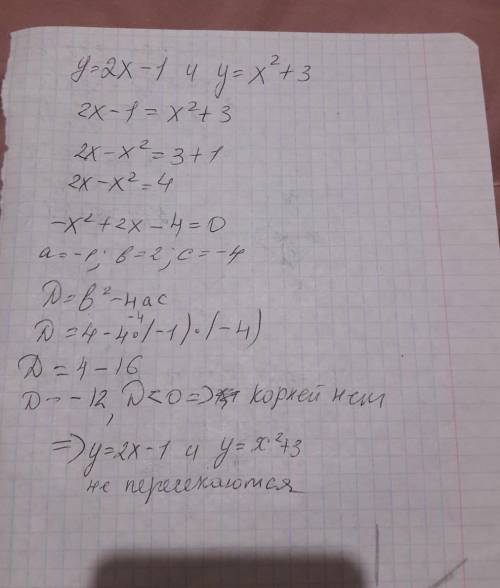 y=2x-1 и y=x²+3
2x-1=x²+3
2x-x²=3+1
2x-x²=4
-x²+2x-4=0
a=-1; b=2; c=-4
D=b²-4ac
D=4-4·(-1)·(-4)
-4
D=4-16
D=-12, D<0=> корней нет
=>y=2x-1 и y=x²+3
не пересекаются